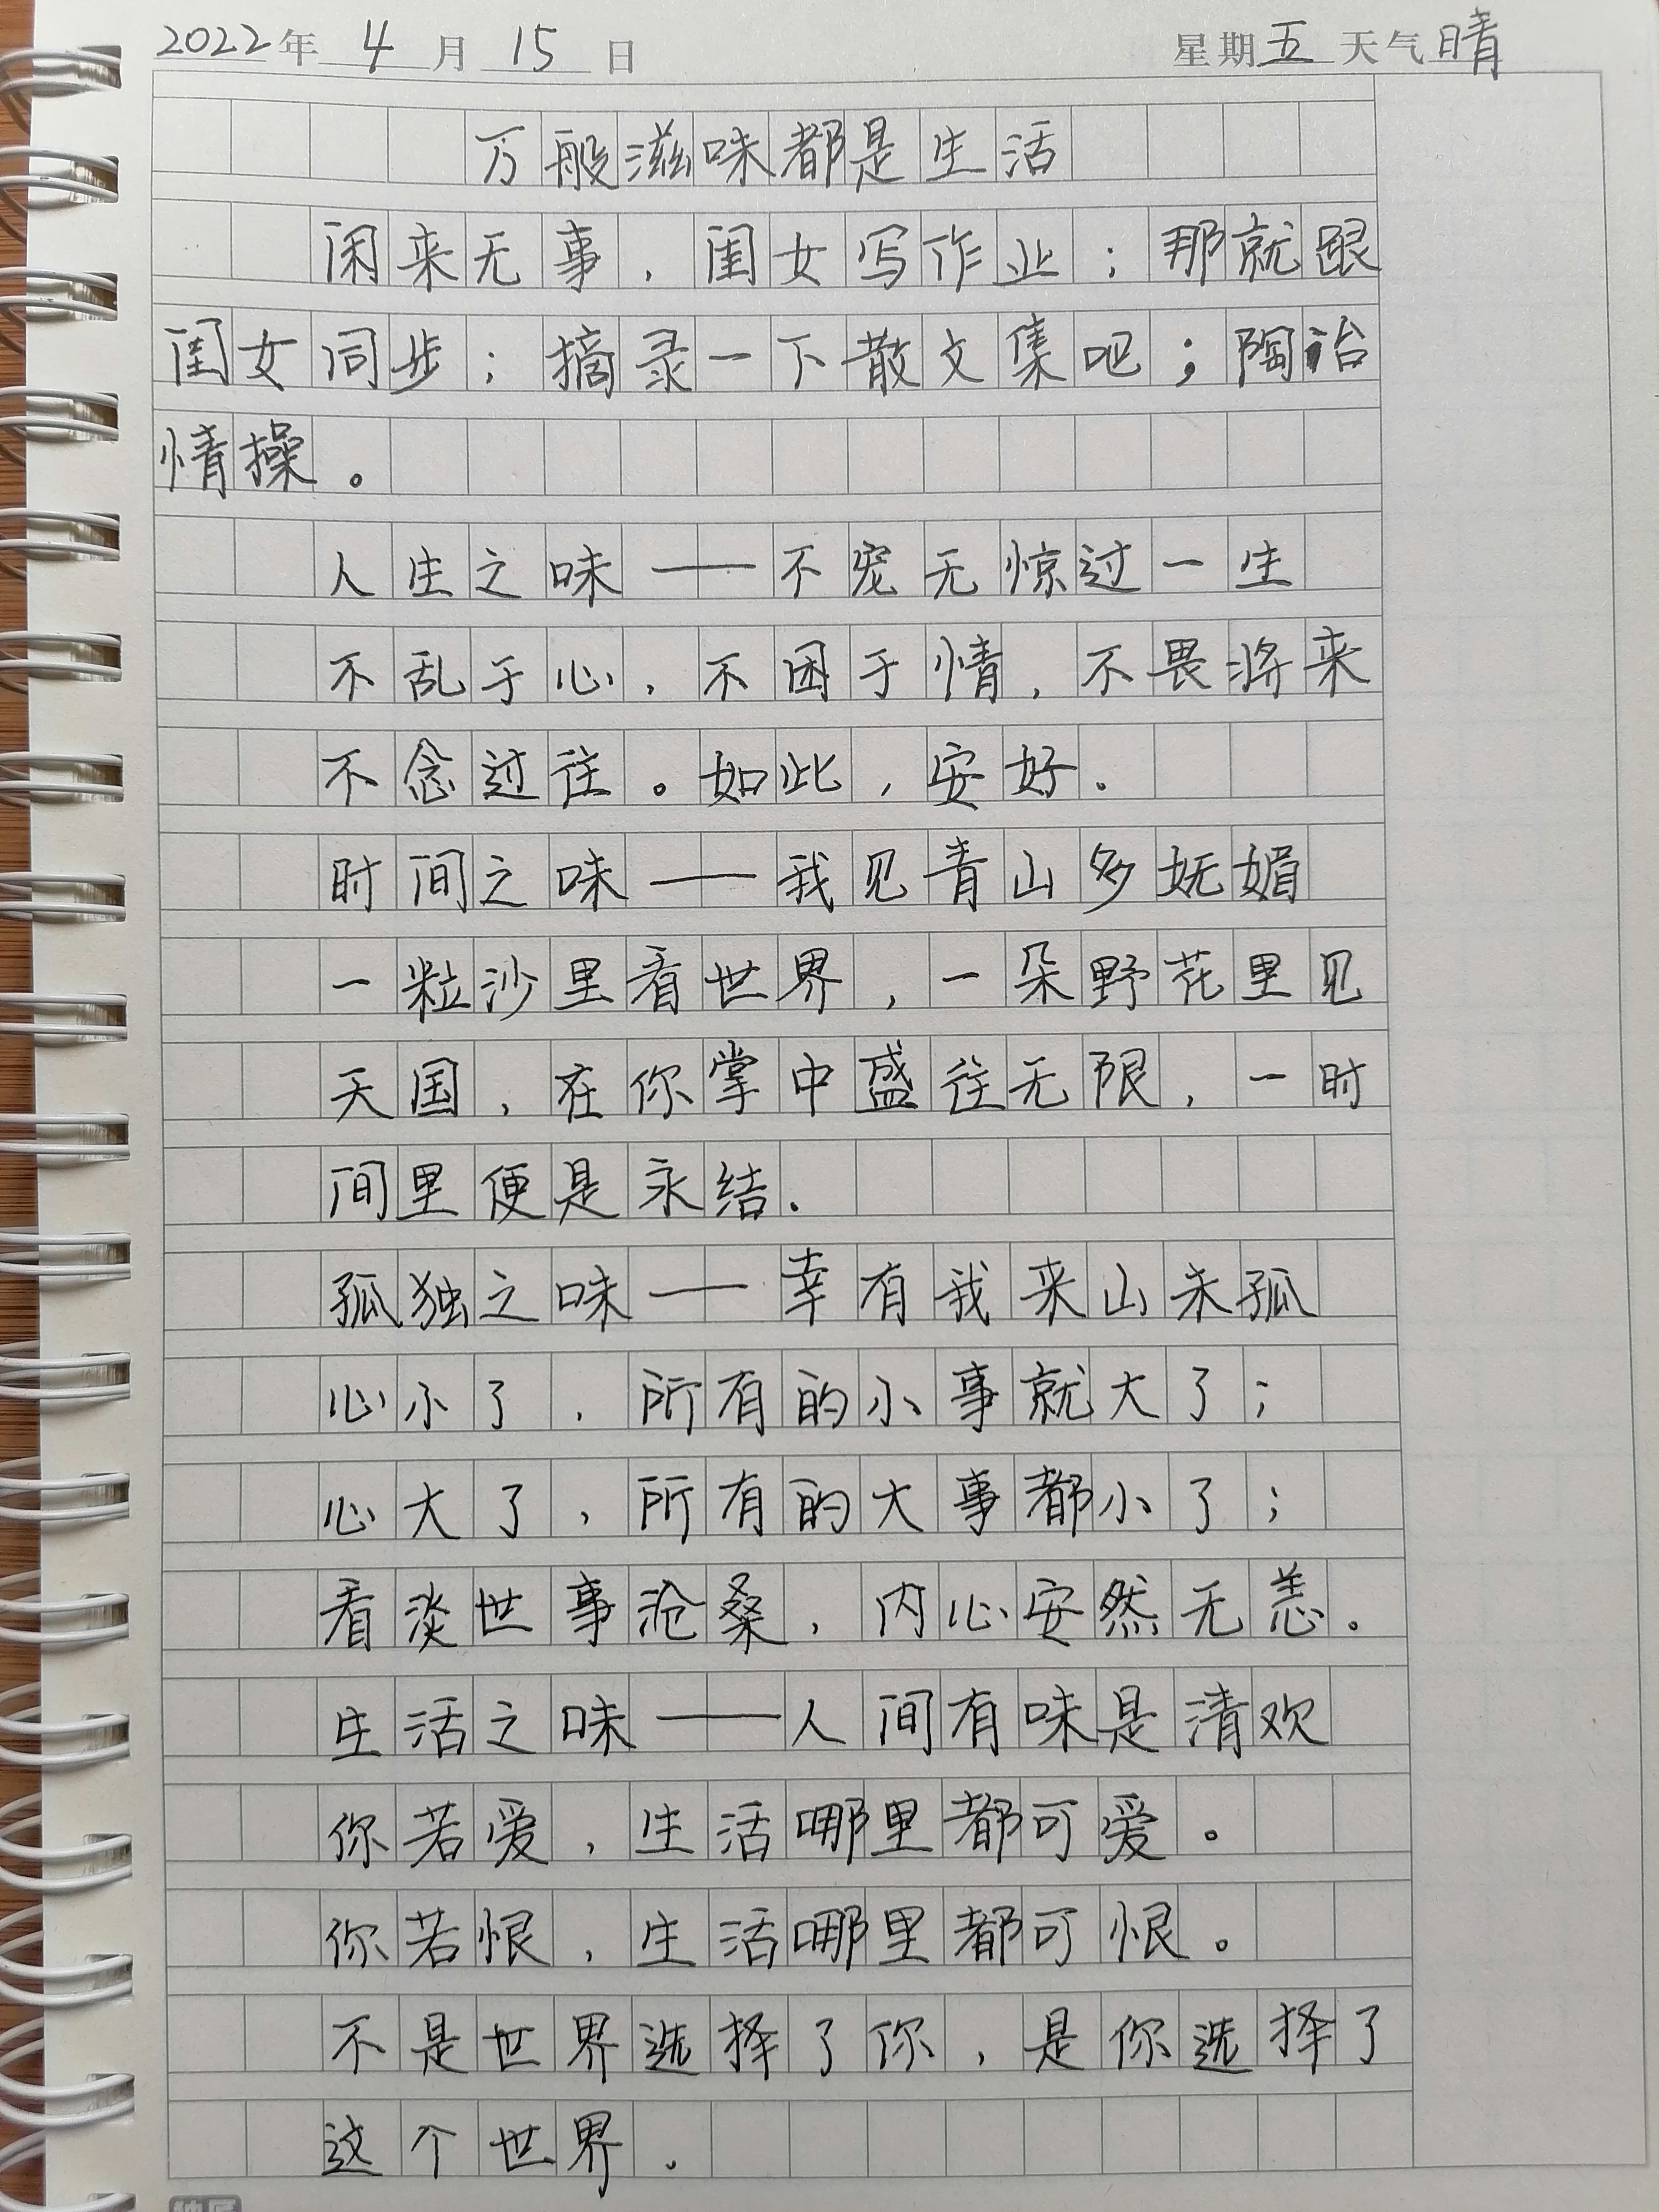 2022年 4 月 15 日 星期五 天气晴
万般滋味都是生活
闲来无事，闺女写作业；那就跟
闺女同步；摘录一下散文集吧；陶冶
情操。
人生之味——不宠无惊过一生
不乱于心，不困于情，不畏将来
不念过往。如此，安好.
时间之味——我见青山多妩媚
一粒沙里看世界，一朵野花里见
天国，在你掌中盛往无限，一时
间里便是永结.
孤独之味——幸有我来山未孤
心小了，所有的小事就大了；
心大了，所有的大事都小了；
看淡世事沧桑，内心安然无恙。
生活之味——人间有味是清欢
你若爱，生活哪里都可爱。
你若恨，生活哪里都可恨。
不是世界选择了你，是你选择了
这个世界.